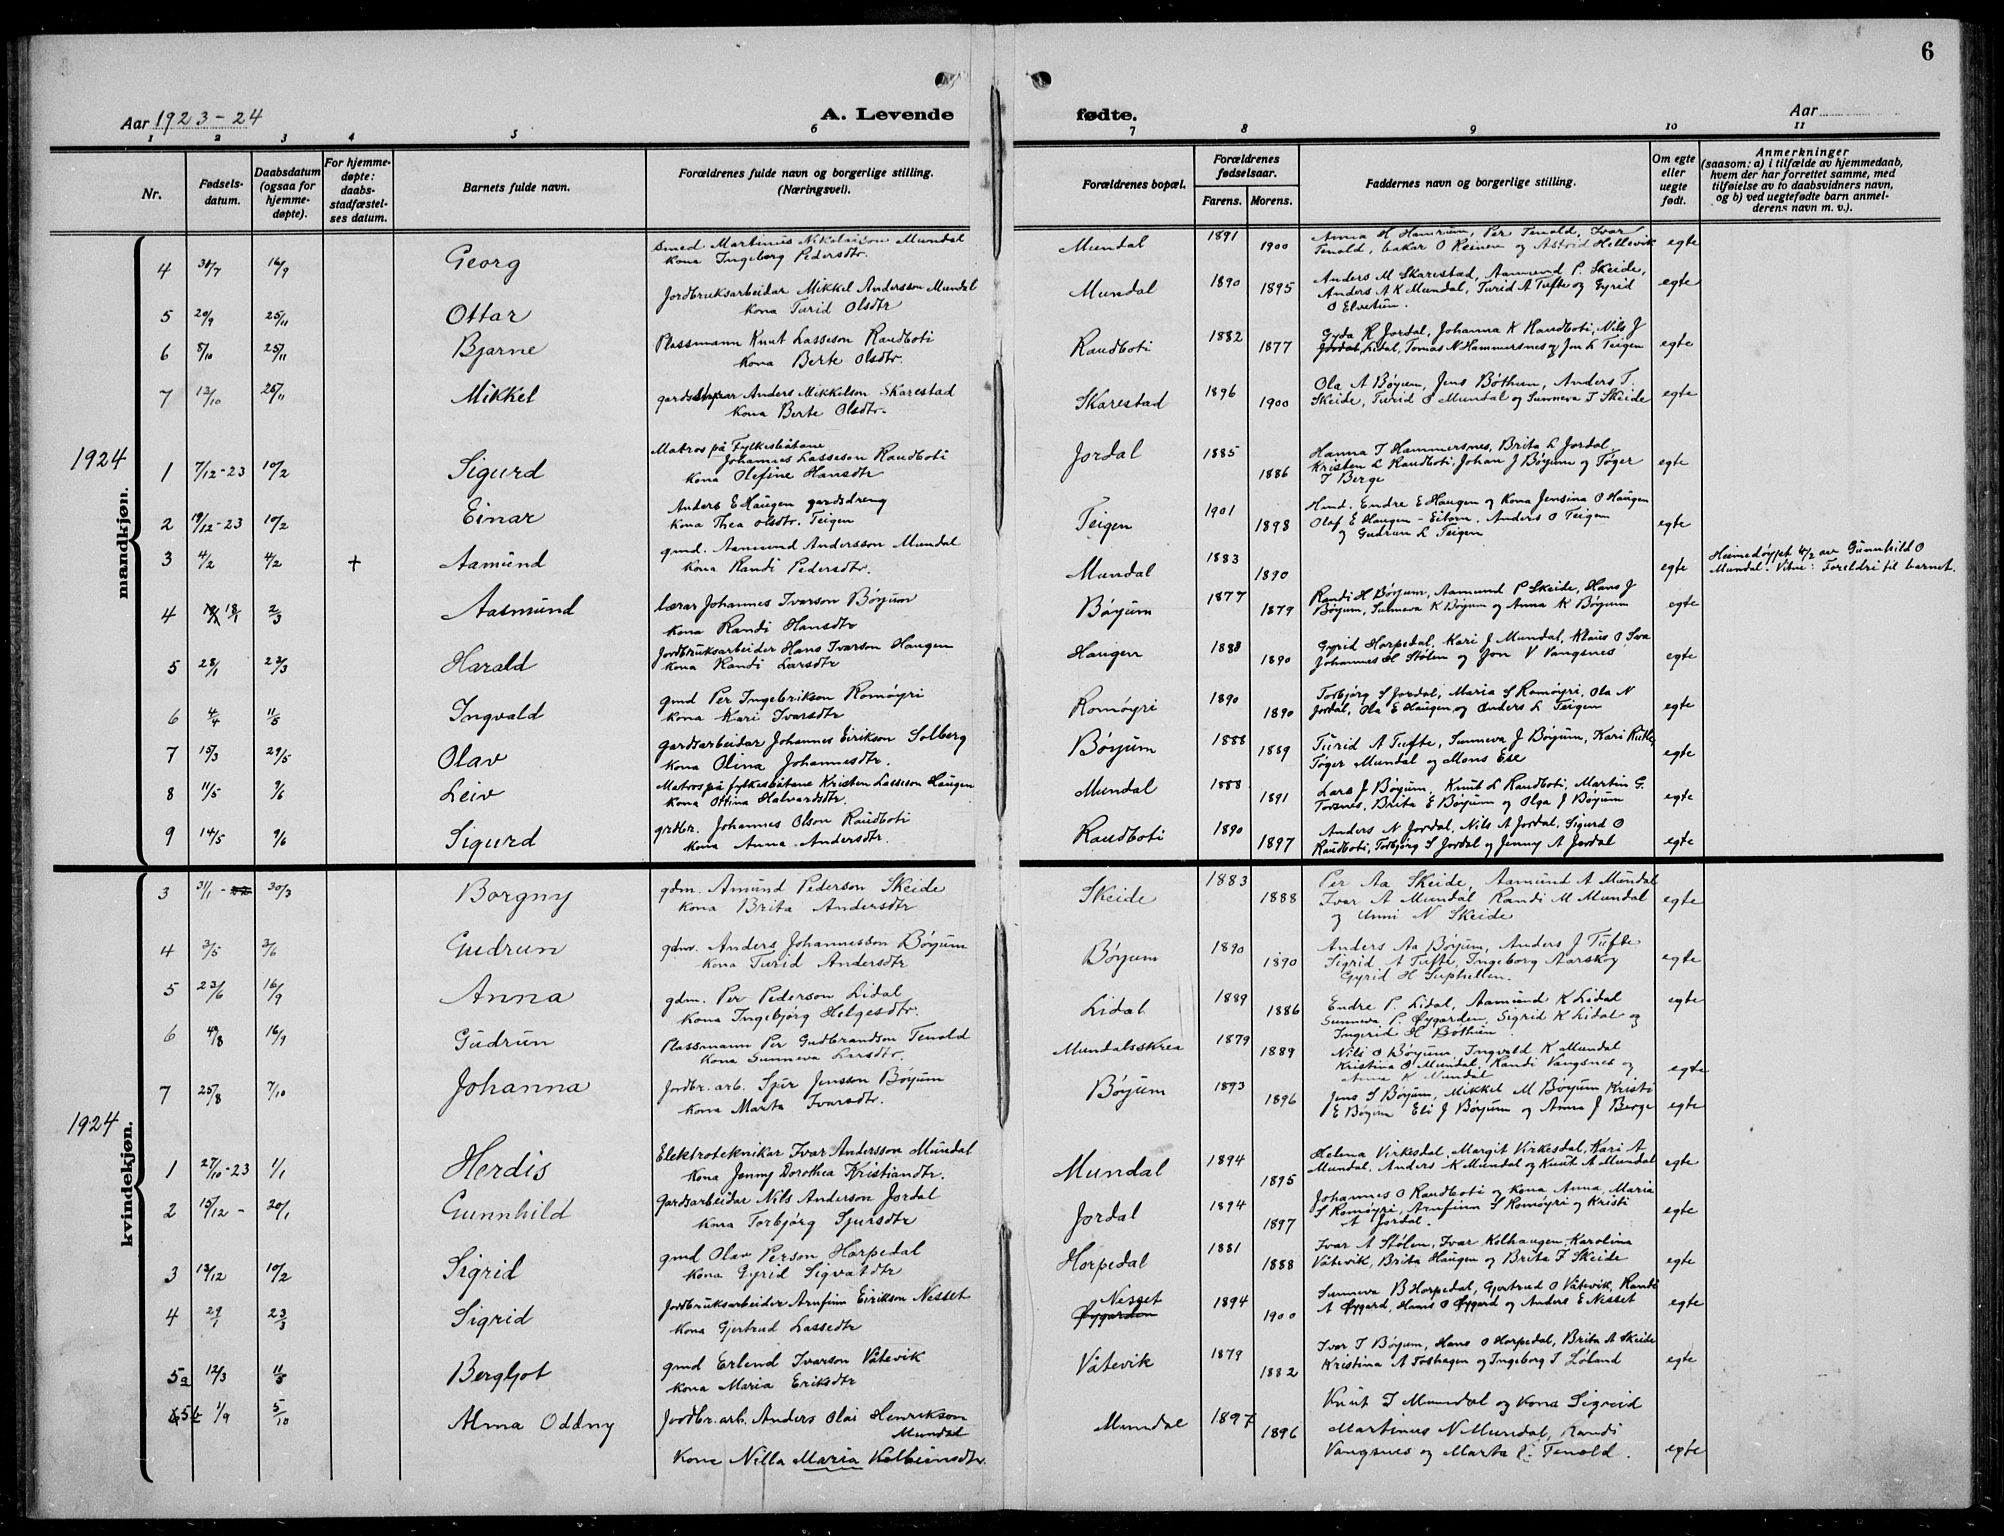 6
Aar 1923-24
A. Levende fødte.
Aar
1 2 3 4 5 6 7 8 9 10 11
Nr.
Fødsels-
datum.
Daabsdatum
(ogsaa for
hjemme-
døpte).
For hjemme-
døpte:
daabs-
stadfæstel-
ses datum.
Barnets fulde navn.
Forældrenes fulde navn og borgerlige stilling.
(Næringsvei).
Forældrenes bopæl.
Forældrenes
fødselsaar.
Farens. Morens.
Faddernes navn og borgerlige stilling.
Om egte
eller
uegte
født.
Anmerkninger
(saasom: a) i tilfælde av hjemmedaab,
hvem der har forrettet samme, med
tilføielse av to daabsvidners navn,
og b) ved uegtefødte barn anmel-
derens navn m. v.).
mandkjøn.
4 30/7 16/9 Georg Smed Martinus Nikolaison Mundal Mundal 1891 Anna H Hamrum, Per Tenold, Ivar
kona Ingeborg Pedersdtr. 1900 Tenold, bakar O Reinen og Astrid Hellevik egte
5 20/9 25/11 Ottar Jordbruksarbeidar Mikkel Andersson Mundal Mundal 1890 1895 Anders M Skarestad, Aamund P. Skeide,
kona Turid Olsdtr Anders A K Mundal, Turid A Tufte og Gyrid egte
O Elvetun.
6 5/10 25/11 Bjarne Plassmann Knut Lasseson Raudboti Raudboti 1882 Gyda H Jordal, Johanna K Raudboti, Nils J
kona Berte Olsdtr. 1877 Jordal, Lidal, Tomas N Hammersnes og Jon L Teigen egte
7 13/10 25/11 Mikkel gards Anders Mikkelson Skarestad Skarestad 1896 Ola A Bøyum, Jens Bøthun, Anders T.
kona Berte Olsdtr. 1900 Skeide, Turid O Mundal og Sunneva T Skeide egte
1924
1 7/12-23 10/2 Sigurd Matros på Fylkesbåtane Jordal 1885 Hanna T Hammersnes, Brita L Jordal,
Johannes Lasseson Raudboti Kristen L Raudboti, Johan J Bøyum og Tøger
kona Olefine Hansdtr 1886 T Berge egte
2 19/12-23 10/2 Einar Anders E Haugen gardsdreng Teigen 1901 Hmd. Endre E Haugen og Kona Jensina O Haugen
kona Thea Olsdtr. Teigen 1898 Olaf E Haugen - Eitorn, Anders O Teigen
og Gudrun L Teigen egte
3 4/2 4/2 + Aamund gmd. Aamund Andersson Mundal Mundal 1883 Heimedøypt 4/2 av Gunnhild O
kona Randi Pedersdtr. 1890 egte Mundal. Vitne: Foreldri til barnet.
4 18/1 2/3 Aasmund lærar Johannes Ivarson Bøyum Bøyum 1877 Randi H Bøyum, Aamund P Skeide, Hans J
kona Randi Hansdtr 1879 Bøyum, Sunneva K Bøyum og Anna K Bøyum egte
5 28/1 23/3 Harald Jordbruksarbeider Hans Ivarson Haugen Haugen 1883 Gyrid Horpedal, Kari J Mundal, Klaus O Sva
kona Randi Larsdtr 1890 Johannes H Stølen og Jon V Vangsnes egte
6 4/4 11/5 Ingvald gmd Per Ingebrikson Romøyri Romøyri 1890 Torbjørg S Jordal, Maria S Romøyri, Ola N
kona Kari Ivarsdtr 1890 Jordal, Ola E Haugen, og Anders L Teigen egte
7 15/3 29/5 Olav Gardsarbeidar Johannes Eirikson Solberg Bøyum 1888 Turid A Tufte, Sunneva J Bøyum, Kari Rutle,
kona Olina Johannesdtr. 1889 Tøger Mundal og Mons Ese egte
8 11/5 9/6 Leiv Matros på fylkesbåtane Kristen Lasseson Haugen Mundal 1888 Lars J Bøyum, Knut L Raudboti, Martin G.
kona Ottina Halvardsdtr. 1891 Torsnes, Brita E Bøyum og Olga J Bøyum egte
9 14/5 9/6 Sigurd grdbr. Johannes Olson Raudboti Raudboti 1890 Anders N Jordal, Nils A Jordal, Sigurd O
kona Anna Andersdtr. 1897 Raudboti, Torbjørg S Jordal og Jenny A Jordal egte
kvindekjøn.
3 31/1 30/3 Borgny gdm. Amund Pederson Skeide Skeide 1883 Per Aa Skeide, Aamund A Mundal
kona Brita Andersdtr 1888 Ivar A Mundal Randi M Mundal egte
og Anni N Skeide
4 3/5 3/6 Gudrun gdm. Anders Johannesson Bøyum Bøyum 1890 Anders Aa Bøyum, Anders J Tufte
kona Turid Andersdtr 1890 Sigrid A Tufte, Ingeborg Aarskog egte
Gyrid H Suphellen.
5 23/6 16/9 Anna gdm. Per Pederson Lidal Lidal 1889 Endre P. Lidal, Aamund K Lidal egte
kona Ingebjørg Helgesdtr. 1886 Sunneva P. Øygarden, Sigrid K Lidal og
Ingerid H Bøthun.
6 4/8 16/9 Gudrun Plassmann Per Gudbrandson Tenold Mundalsskrea 1879 Nils O Bøyum, Ingvald K Mundal
kona Sunneva Larsdtr. 1889 Kristina O Mundal, Randi Vangsnes og
Anna K Mundal egte
7 25/8 7/10 Johanna Jordbr. arb. Sjur Jensson Bøyum Bøyum 1893 Jens S Bøyum, Mikkel M Bøyum Kristi
kona Marta Ivarsdtr. 1896 E Bøyum Eli J Bøyum og Anna J Berge egte
1924
1 27/10-23 1/1 Herdis Elektroteknikar Ivar Andersson Mundal Mundal 1894 Helena Virkesdal, Margit Virkesdal, Kari A
kona Jenny Dorothea Kristiandtr. 1895 Mundal, Anders K Mundal og Knut A Mundal egte
2 15/12 - 20/1 Gunnhild Gardsarbeidar Nils Anderson Jordal Jordal 1894 Johannes O Raudboti og kona Anna, Maria
kona Torbjørg Sjursdtr 1897 S Romøyri, Arnfinn S Romøyri og Kristi
A Jordal. egte
3 13/12 10/2 Sigrid gmd Olav Person Horpedal Horpedal 1881 Ivar A Stølen, Ivar Kolhaugen, Karolina
kona Gyrid Sigvatdtr 1888 Våtevik, Brita Haugen og Brita T Skeide egte
4 29/1 23/3 Sigrid Jordbruksarbeider Arnfinn Eirikson Nesset Nesset 1894 Sunneva B Horpedal, Gjertrud O Våtevik, Randi
kona Gjertrud Lassedtr Øygarden 1900 A Øygard, Hans O Øygard og Anders E Nesset egte
5a 12/3 11/5 Bergljot gmd Erlend Ivarson Våtevik Våtevik 1879 Ivar T Bøyum, Hans O Horpedal, Brita A Skeide
kona Maria Eriksdtr 1882 Kristina A Toshagen og Ingeborg T Løland egte
5b 1/9 5/10 Alma Oddny Jordbr. arb. Anders Olai Henrikson Mundal 1897 Knut I Mundal og Kona Sigrid
Mundal 1896 Martinus N Mundal, Randi
Kona Nilla Maria Kolbeinsdtr. Vangsnes og Marta P. Tenold. egte